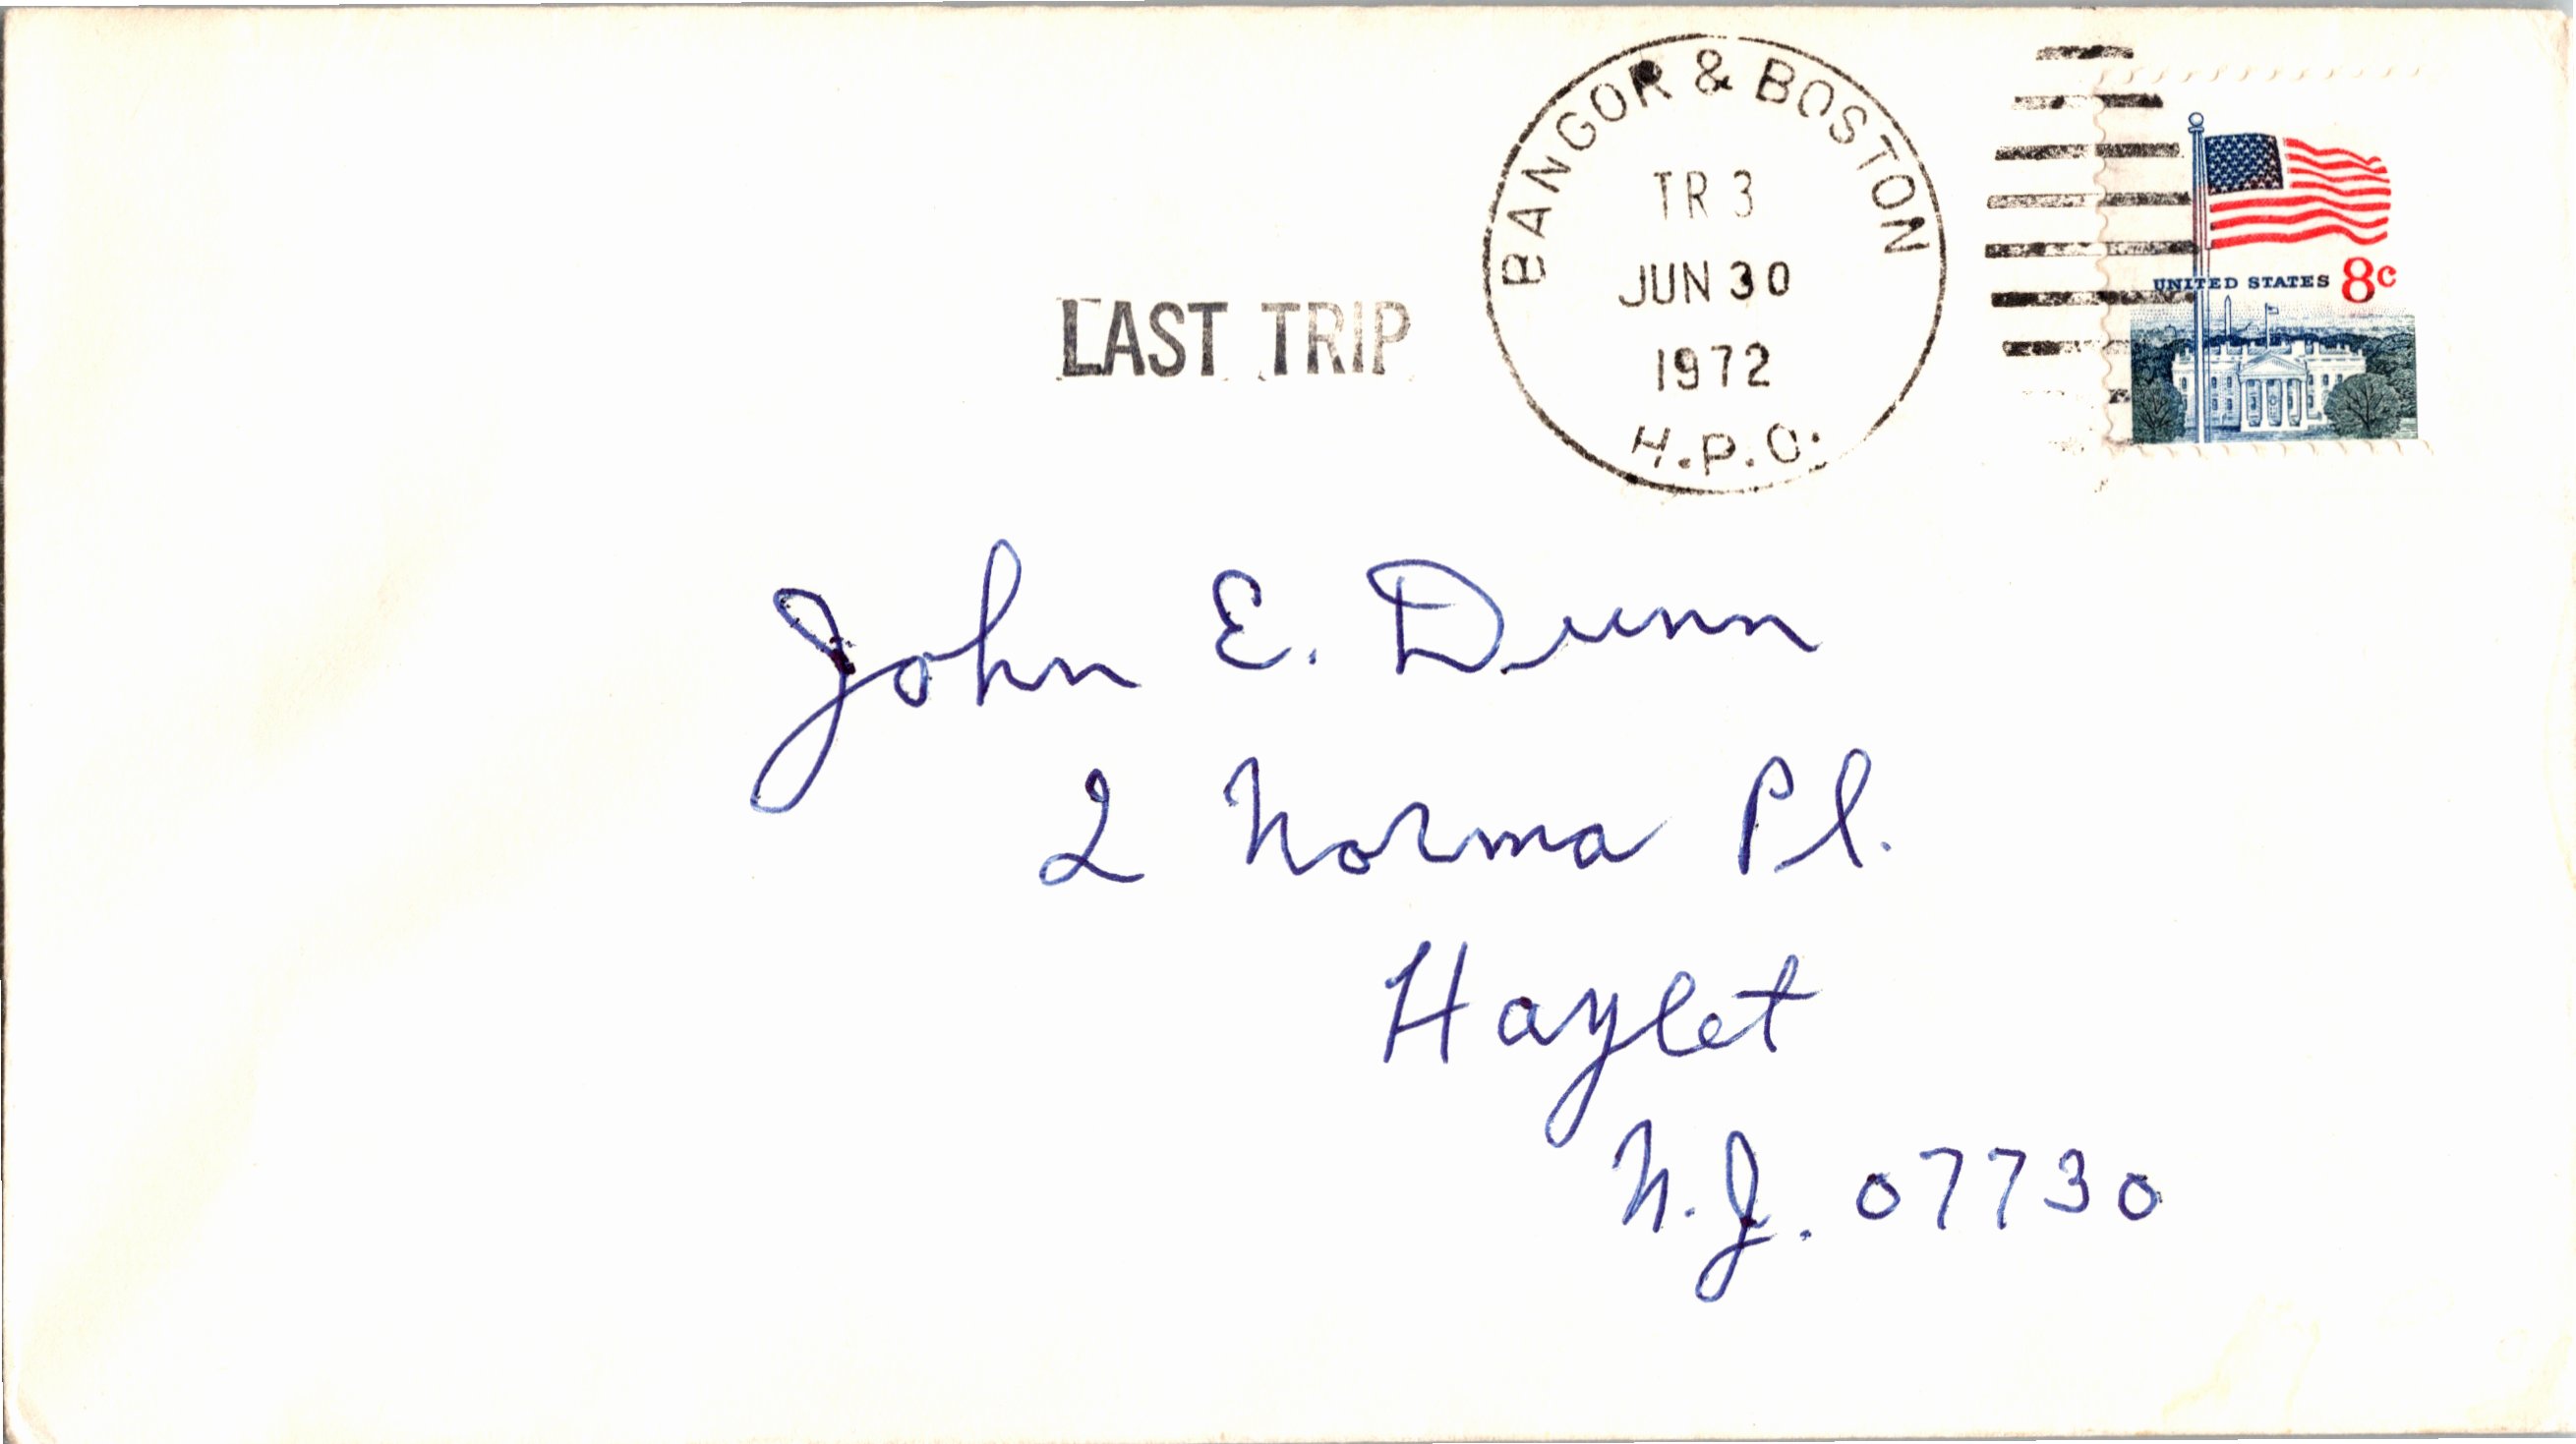 BANGOR & BOSTON
TR 3
JUN 30
1972
H.P.O.
LAST TRIP
UNITED STATES 8c
John E. Dunn
2 Norma Pl.
Hazlet
N.J. 07730